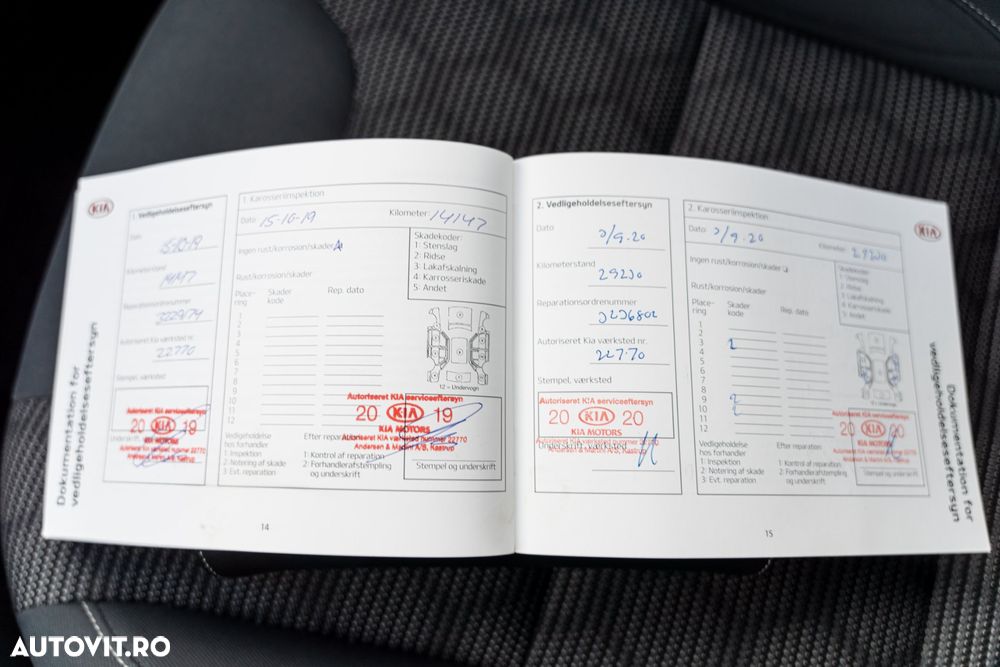 KIA
Dokumentation for
vedligeholdelseseftersyn
1. Vedligeholdelseseftersyn
Dato
15-10-19
Kilometerstand
14147
Reparationsordrenummer
Autoriseret Kia værksted nr.
22770
Stempel, værksted
Autoriseret KIA serviceeftersyn
20 KIA 19
KIA MOTORS
Autoriseret KIA værksted nummer 22770
Andersen & Martini A/S, Kastrup
1. Karosseriinspektion
Dato 15-10-19
Kilometer: 14147
Ingen rust/korrosion/skader
Rust/korrosion/skader:
Skadekoder:
1: Stenslag
2: Ridse
3: Lakafskalning
4: Karrosseriskade
5: Andet
Place-
ring
Skader
kode
Rep. dato
1
2
3
4
5
6
7
8
9
10
11
12
12 = Undervogn
Autoriseret KIA serviceeftersyn
20 KIA 19
KIA MOTORS
Autoriseret KIA værksted nummer 22770
Andersen & Martini A/S, Kastrup
Vedligeholdelse
hos forhandler
1: Inspektion
2: Notering af skade
3: Evt. reparation
Efter reparation
1: Kontrol af reparation
2: Forhandlerafstempling
og underskrift
Stempel og underskrift
14
2. Vedligeholdelseseftersyn
Dato
Kilometerstand
29230
Reparationsordrenummer
3236802
Autoriseret Kia værksted nr.
22770
Stempel, værksted
Autoriseret KIA serviceeftersyn
20 KIA 20
KIA MOTORS
Autoriseret KIA værksted nummer 22770
Andersen & Martini A/S, Kastrup
Underskrift, værksted
2. Karosseriinspektion
Dato
Kilometer: 29230
Ingen rust/korrosion/skader
Rust/korrosion/skader:
Skadekoder:
1: Stenslag
2: Ridse
3: Lakafskalning
4: Karrosseriskade
5: Andet
Place-
ring
Skader
kode
Rep. dato
1
2
3 2
4
5
6
7
8
9 2
10 2
11
12
12 = Undervogn
Autoriseret KIA serviceeftersyn
20 KIA 20
KIA MOTORS
Autoriseret KIA værksted nummer 22770
Andersen & Martini A/S, Kastrup
Vedligeholdelse
hos forhandler
1: Inspektion
2: Notering af skade
3: Evt. reparation
Efter reparation
1: Kontrol af reparation
2: Forhandlerafstempling
og underskrift
Stempel og underskrift
15
KIA
Dokumentation for
vedligeholdelseseftersyn
AUTOVIT.RO